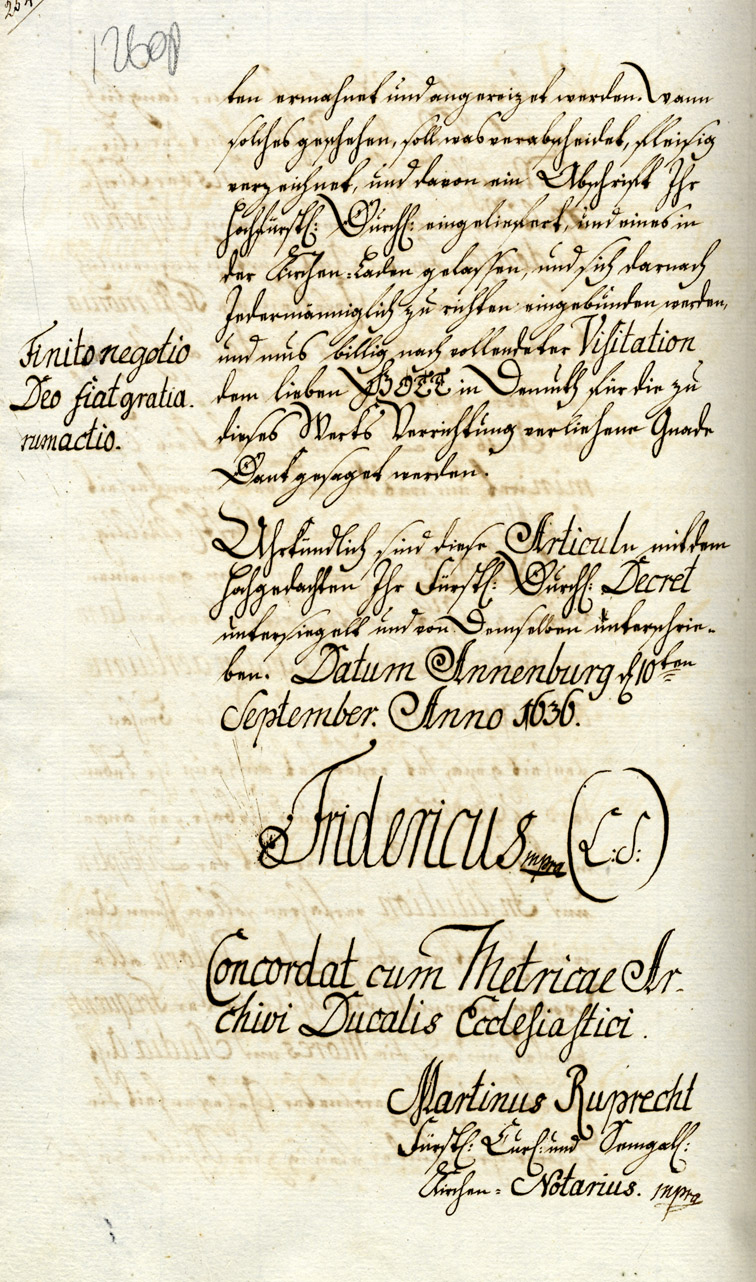 1260p
ten ermahnet und angereizet werden. Wann
solches geschehen, soll was verabscheidet, fleisig
verzeichnet, und davon ein Abschrift Ihr
Hochfürstl: Durchl: eingeliefert, und eines in
der Kirchen-Laden gelassen, und sich darnach
Jedermänniglich zu richten eingebunden werden,
und mus billig nach vollendeter Visitation
dem lieben GOTT in Demuth für die zu
dieses Werks Verrichtung verliehene Gnade
Dank gesaget werden.
Finito negotio
Deo fiat gratia.
rum actio.
Uhrkündlich sind diese Articuln mit dem
Hochgedachten Ihr Fürstl: Durchl: Decret
untersiegelt und von Demselben unterschrie-
ben. Datum Annenburg d 10ten
September. Anno 1636.
Fridericus mpra (L:S:)
Concordat cum Metricae Ar-
chivi Ducalis Ecclesiastici.
Martinus Ruprecht
Fürstl: Curl: und Semgall:
Kirchen-Notarius. mpra